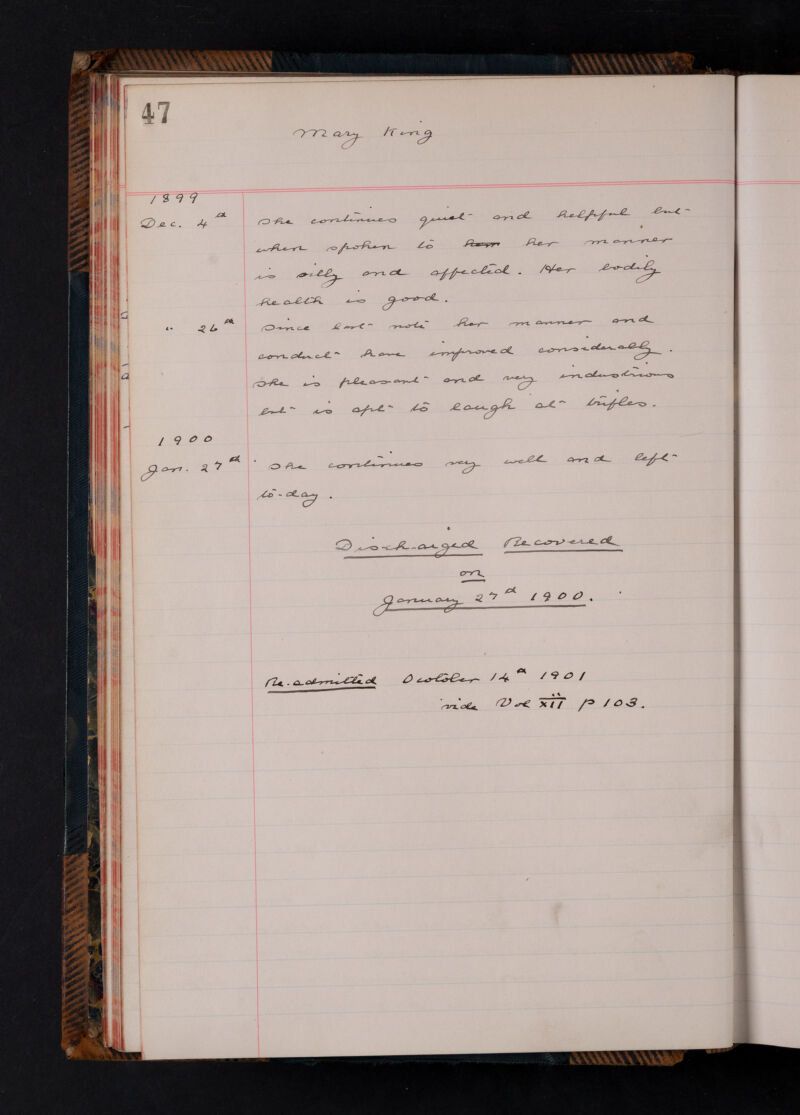 47
Mary King
1899
Dec. 4th She continues quiet and helpful but
when spoken to her manner
is silly and affected. Her bodily
health is good.
" 26th Since last note her manner and
conduct have improved considerably.
She is pleasant and very industrious
but is apt to laugh at trifles.
1900
Jan. 27th She continues very well and left
to-day.
Discharged Recovered
on
January 27th 1900.
Re-admitted October 14th 1901
vide Vol XII p 103.